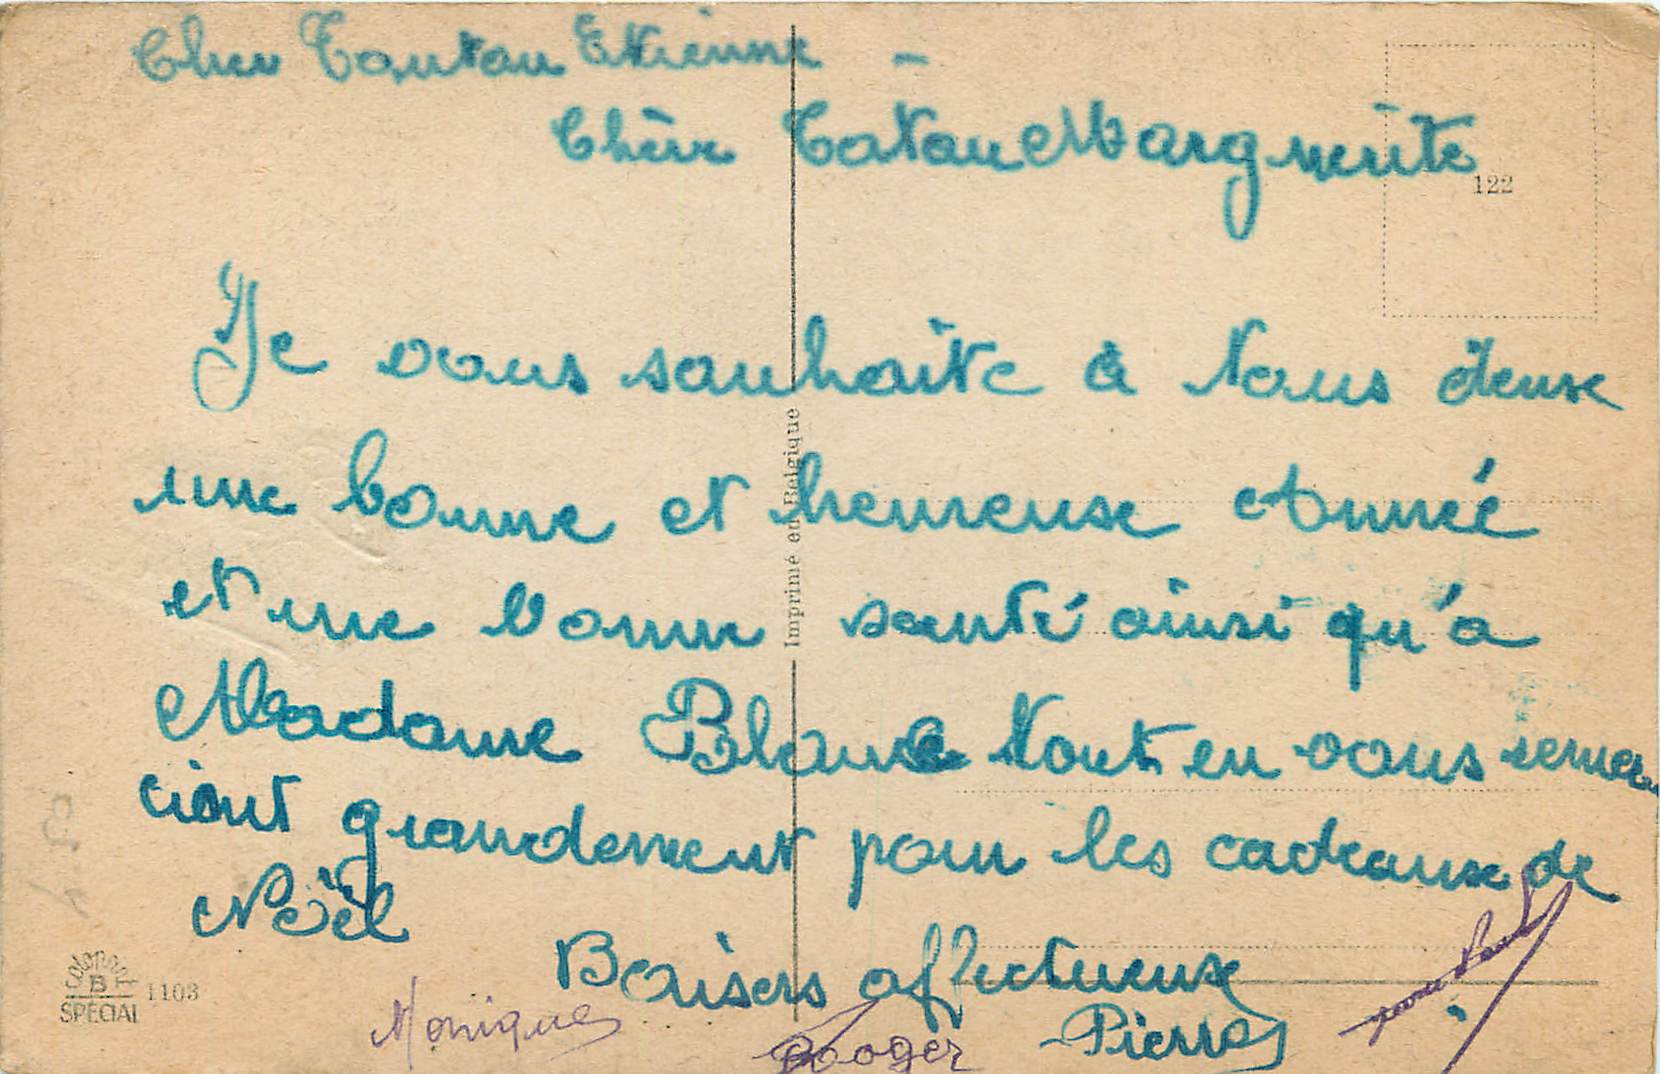 Cher Tonton Etienne -
Chère Tatan Marguerite
122
Je vous souhaite à tous deux
une bonne et heureuse Année
et une bonne santé ainsi qu'à
Madame Blanc tout en vous remer
ciant grandement pour les cadeaux de
Noël
Baisers affectueux
Monique Roger Pierre
Imprimé en Belgique
B
SPECIAL
1103